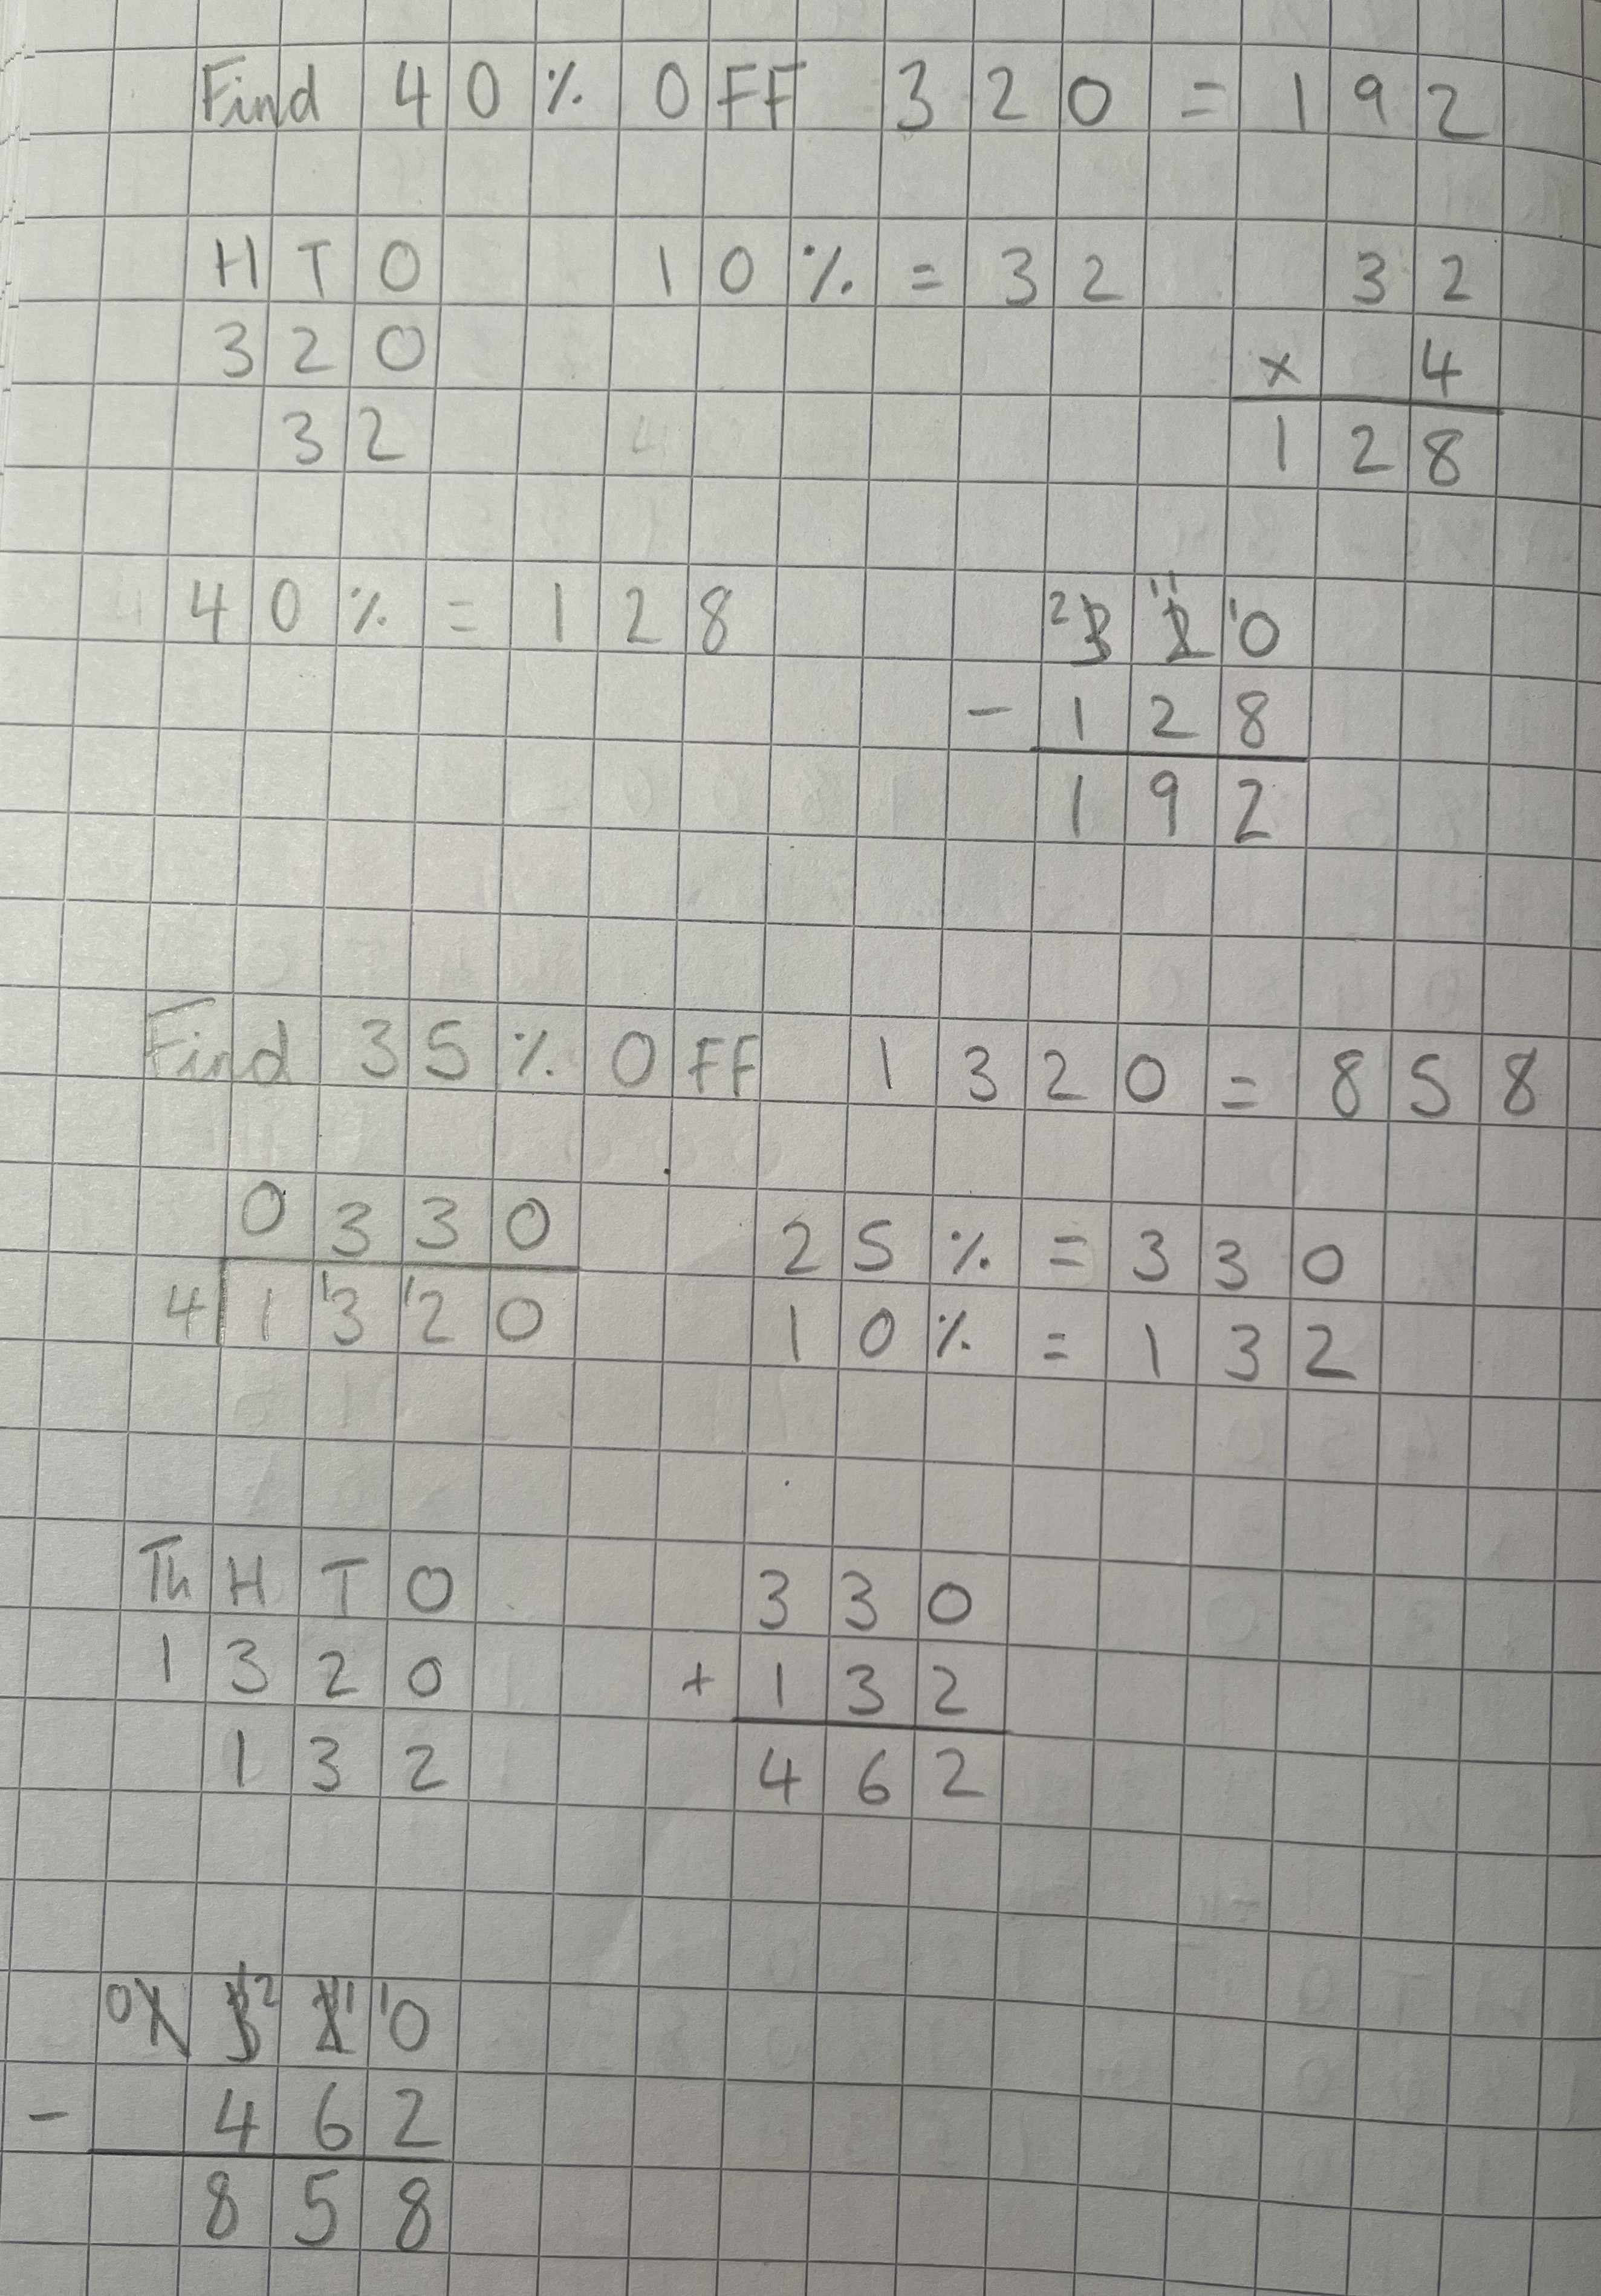 Find 40% OFF 320 = 192
H T O 10% = 32 32
320 × 4
32 128
40% = 128 ²3 ¹¹2 ¹0
- 128
192
Find 35% OFF 1320 = 858
0330 25% = 330
4 1 ¹3 ¹2 0 10% = 132
Th H T O 330
1320 + 132
132 462
⁰1 3¹² 2¹¹ ¹0
- 462
858